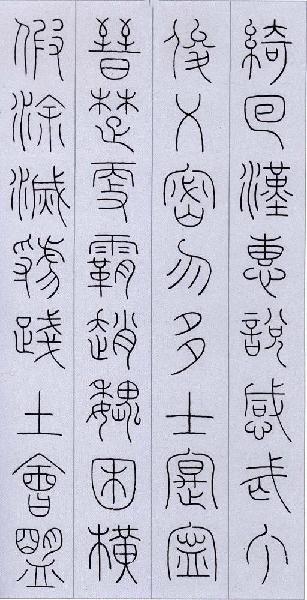 綺回漢惠說感武丁
俊乂密勿多士寔寧
晉楚更霸趙魏困橫
假涂滅虢踐土會盟